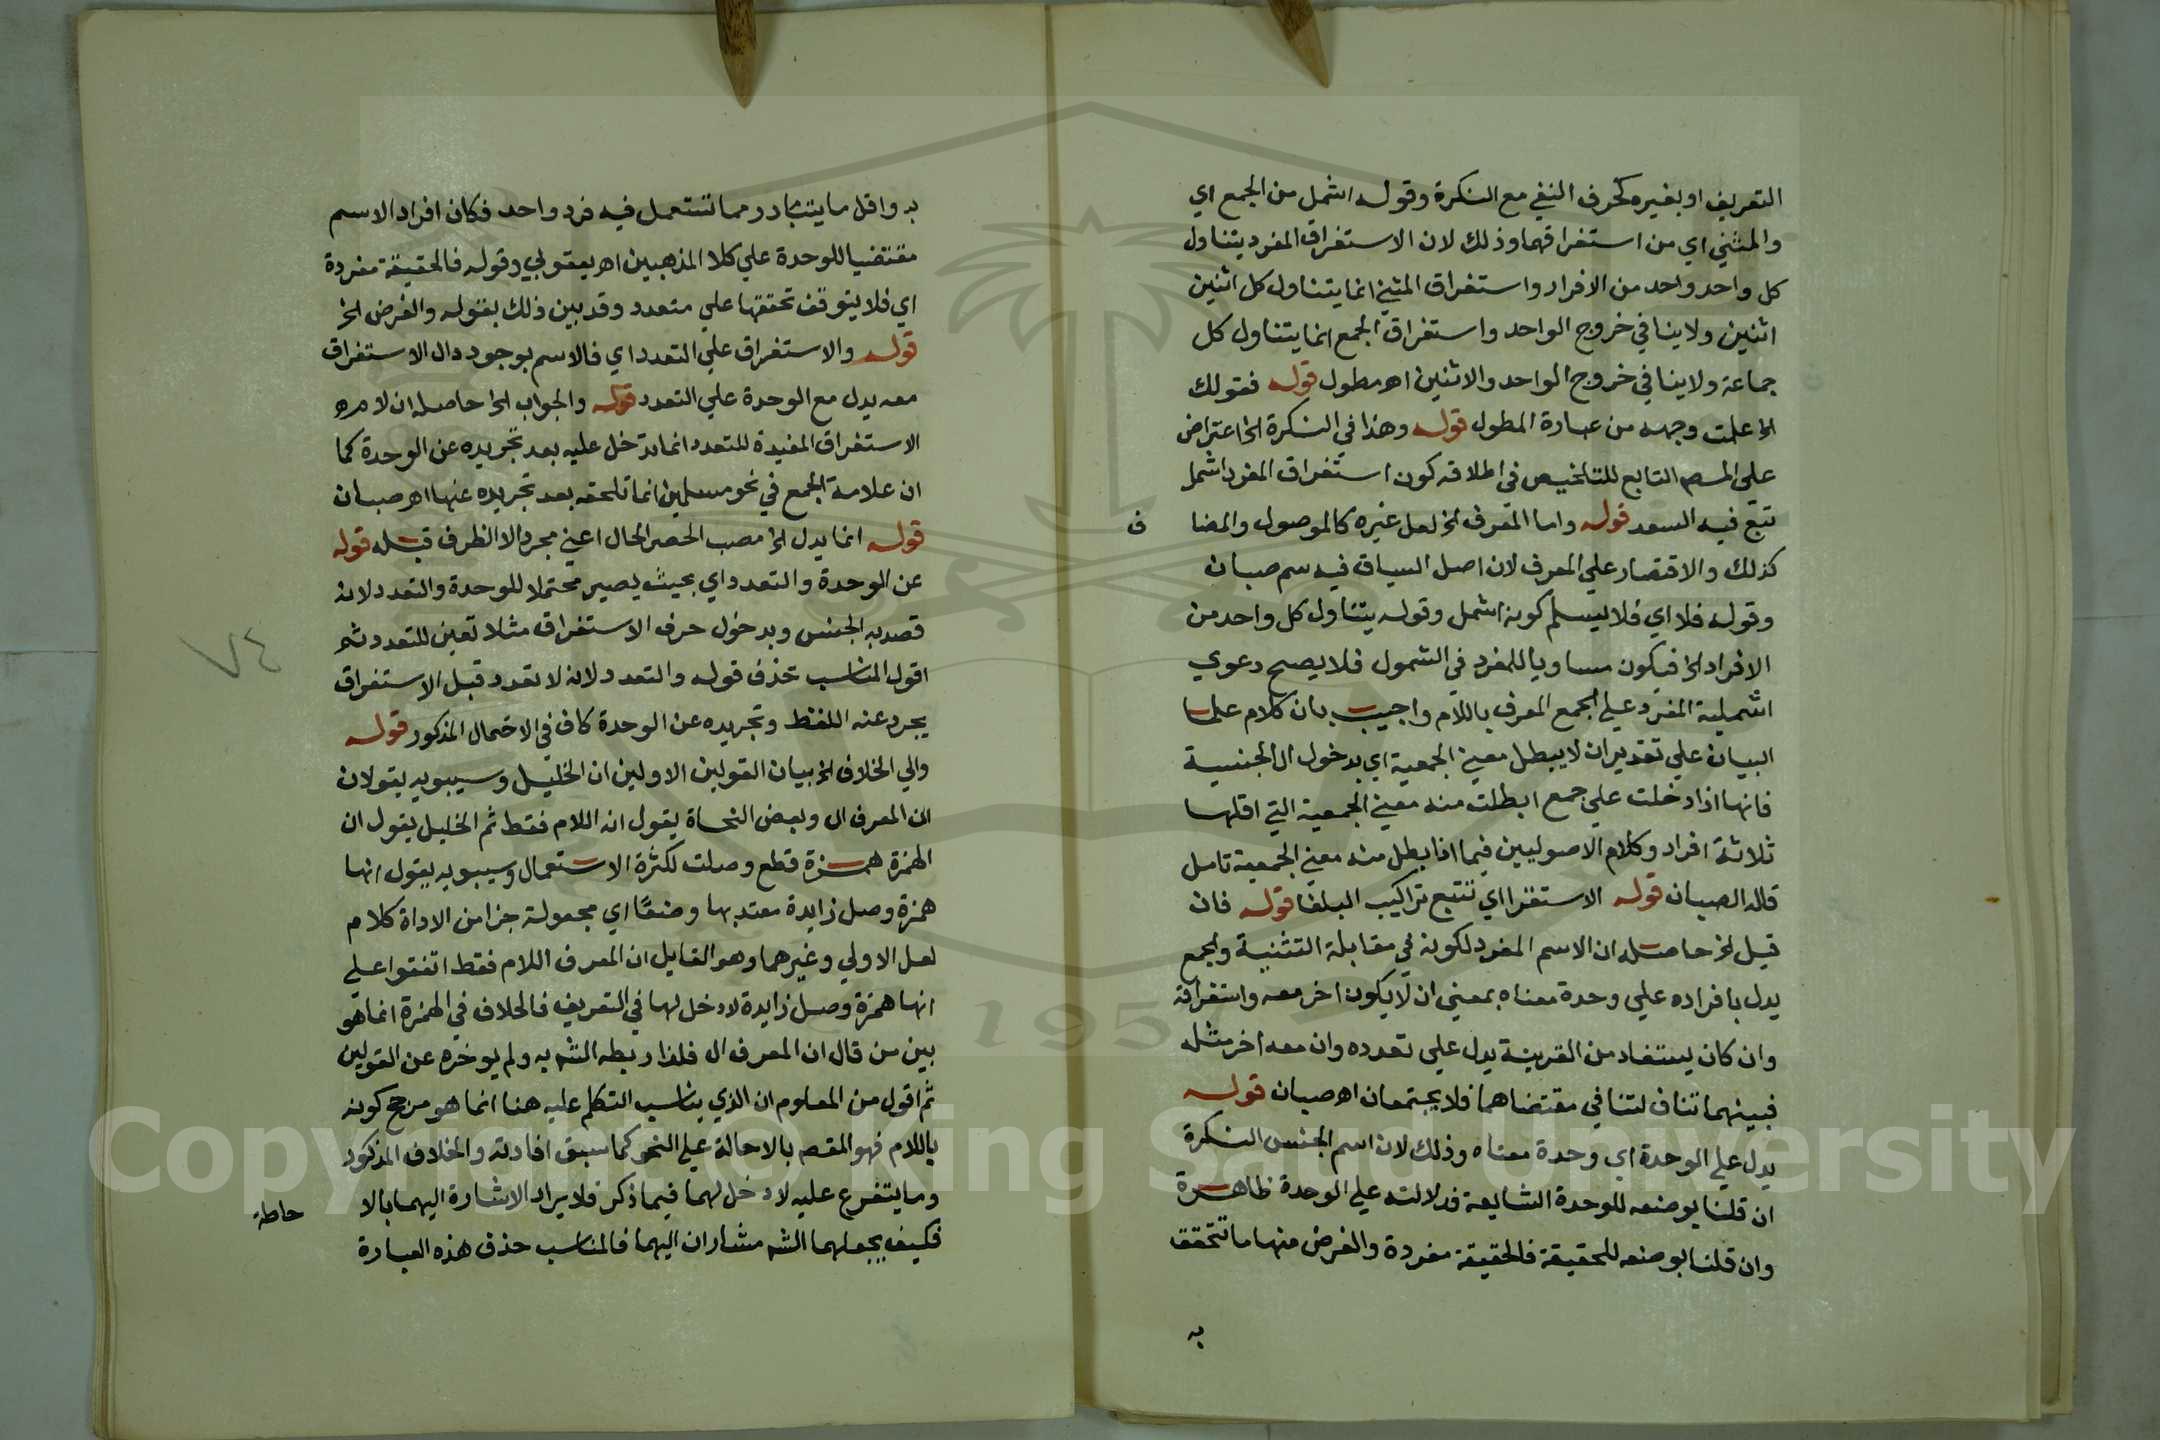 التعريف او بغيره كحرف النفي مع النكرة وقوله اشمل من الجمع اي
والمثني اي من استغراقهما وذلك لان الاستغراق المفرد يتناول
كل واحد واحد من الافراد واستغراق المثني انما يتناول كل اثنين
اثنين ولا ينافي خروج الواحد واستغراق الجمع انما يتناول كل
جماعة ولا ينافي خروج الواحد والاثنين اه مطول قوله فقولك
الخ علمت وجهه من عبارة المطول قوله وهذا في النكرة الخ اعتراض
على المص التابع للتلخيص في اطلاقه كون استغراق المفرد اشمل
تبع فيه السعد قوله واما المعرف الخ لعل غيره كالموصول والمضا
ف
كذلك والاقتصار علي المعرف لان اصل السياق فيه سم صبان
وقوله فلا اي فلا يسلم كونه اشمل وقوله يتناول كل واحد من
الافراد الخ فيكون مساويا للمفرد في الشمول فلا يصح دعوي
اشملية المفرد علي الجمع المعرف باللام واجيب بان كلام علما
البيان علي تقدير ان لا يبطل معني الجمعية اي بدخول ال الجنسية
فانها اذا دخلت علي جمع ابطلت منه معني الجمعية التي اقلها
ثلاثة افراد وكلام الاصوليين فيما اذا بطل منه معني الجمعية تامل
قاله الصبان قوله الاستقرا اي تتبع تراكيب البلغا قوله فان
قيل الخ حاصله ان الاسم المفرد لكونه في مقابلة التثنية والجمع
يدل بافراده علي وحدة معناه بمعني ان لا يكون اخر معه واستغراقه
وان كان يستفاد من القرينة يدل علي تعدده وان معه اخر مثله
فبينهما تناف لتنافي مقتضاهما فلا يجتمعان اه صبان قوله
يدل علي الوحدة اي وحدة معناه وذلك لان اسم الجنس النكرة
ان قلنا بوضعه للوحدة الشايعة فدلالته علي الوحدة ظاهرة
وان قلنا بوضعه للحقيقة فالحقيقة مفردة والغرض منها ما تتحقق
به
به واقل ما يتبادر مما تستعمل فيه فرد واحد فكان افراد الاسم
مقتضيا للوحدة علي كلا المذهبين اه يعقوبي وقوله فالحقيقة مفردة
اي فلا يتوقف تحققها علي متعدد وقد بين ذلك بقوله والغرض الخ
قوله والاستغراق علي التعدد اي فالاسم بوجود دال الاستغراق
معه يدل مع الوحدة علي التعدد قوله والجواب الخ حاصله ان لام
الاستغراق المفيدة للتعدد انما تدخل عليه بعد تجريده عن الوحدة كما
ان علامة الجمع في نحو مسلمين انما تلحقه بعد تجريده عنها اه صبان
قوله انما يدل الخ مصب الحصر الحال اعني مجردا لا الظرف قبله قوله
عن الوحدة والتعدد اي بحيث يصير محتملا للوحدة والتعدد لانه
قصد به الجنس وبدخول حرف الاستغراق مثلا تعين للتعدد ثم
اقول المناسب حذف قوله والتعدد لانه لا تعدد قبل الاستغراق
يجرد عنه اللفظ وتجريده عن الوحدة كاف في الاحتمال المذكور قوله
والي الخلاف الخ بيان القولين الاولين ان الخليل وسيبويه يقولان
ان المعرف ال وبعض النحاة يقول انه اللام فقط ثم الخليل يقول ان
الهمزة همزة قطع وصلت لكثرة الاستعمال وسيبويه يقول انها
همزة وصل زايدة معتد بها وضعًا اي مجعولة جزا من الاداة كلام
لعل الاولي وغيرهما وهو القايل ان المعرف اللام فقط اتفقوا علي
انها همزة وصل زايدة لا دخل لها في التعريف فالخلاف في الهمزة انما هو
بين من قال ان المعرف ال فلذا ربطه الش به ولم يوخره عن القولين
ثم اقول من المعلوم ان الذي يناسب التكلم عليه هنا انما هو مرجح كونه
باللام فهو المقص بالاحالة علي النحو كما سبق افادته والخلاف المذكور
وما يتفرع عليه لا دخل لهما فيما ذكر فلا يراد الاشارة اليهما بالا
حاطة
فكيف يجعلهما الش مشاران اليهما فالمناسب حذف هذه العبارة
٧٤
Copyright © King Saud University
1957